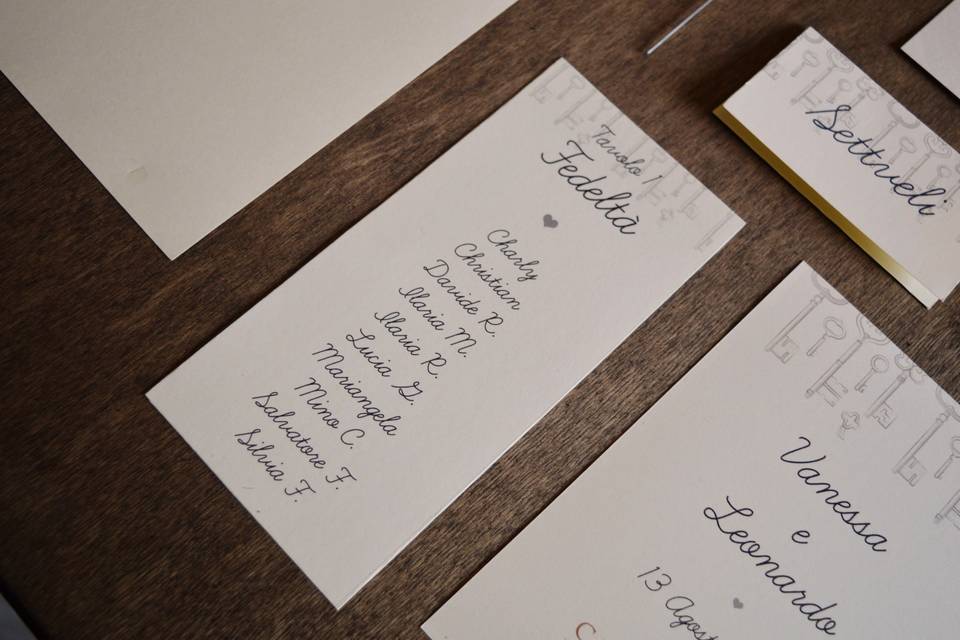 Tavolo 1
Fedeltà
Charly
Christian
Davide R.
Ilaria M.
Ilaria R.
Lucia G.
Mariangela
Mino C.
Salvatore F.
Silvia F.
Settveli
Vanessa
e
Leonardo
13 Agost
C